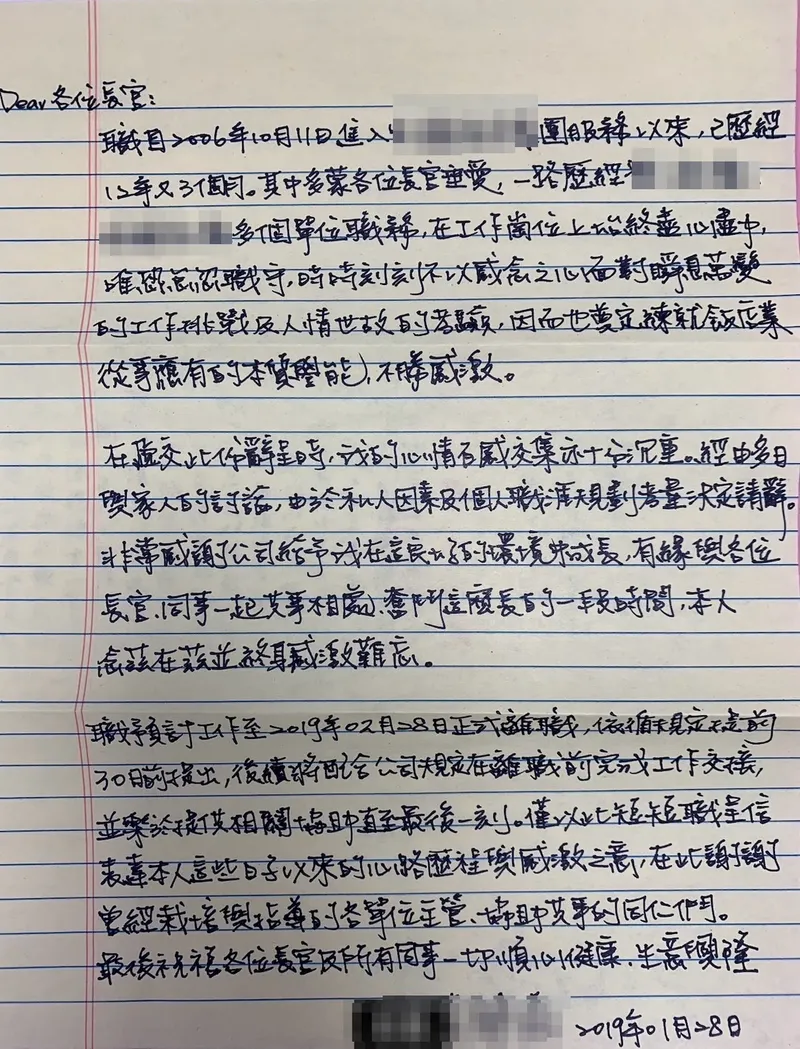 Dear 各位長官：
職自2006年10月11日進入 團服務以來，已歷經
12年又3個月。其中多蒙各位長官垂愛，一路歷經
多個單位職務，在工作崗位上始終盡心盡忠，
唯恐怠忽職守，時時刻刻不以感念之心面對瞬息萬變
的工作挑戰及人情世故的考驗，因而也奠定練就飯店業
從事應有的本質學能，不勝感激。
在遞交此份辭呈時，我的心情百感交集亦十分沉重。經由多日
與家人的討論，由於私人因素及個人職涯規劃考量決定請辭。
非常感謝公司給予我在這良好的環境中成長，有緣與各位
長官、同事一起共事相處、奮鬥這麼長的一段時間，本人
念茲在茲並終身感激難忘。
職預計工作至2019年02月28日正式離職，依循規定提前
30日前提出，後續將配合公司規定在離職前完成工作交接，
並樂於提供相關協助直至最後一刻。僅以此短短職呈信
表達本人這些日子以來的心路歷程與感激之意，在此謝謝
曾經栽培與指導的各單位主管、協助共事的同仁們。
最後祝福各位長官及所有同事一切順心健康、生意興隆
2019年01月28日